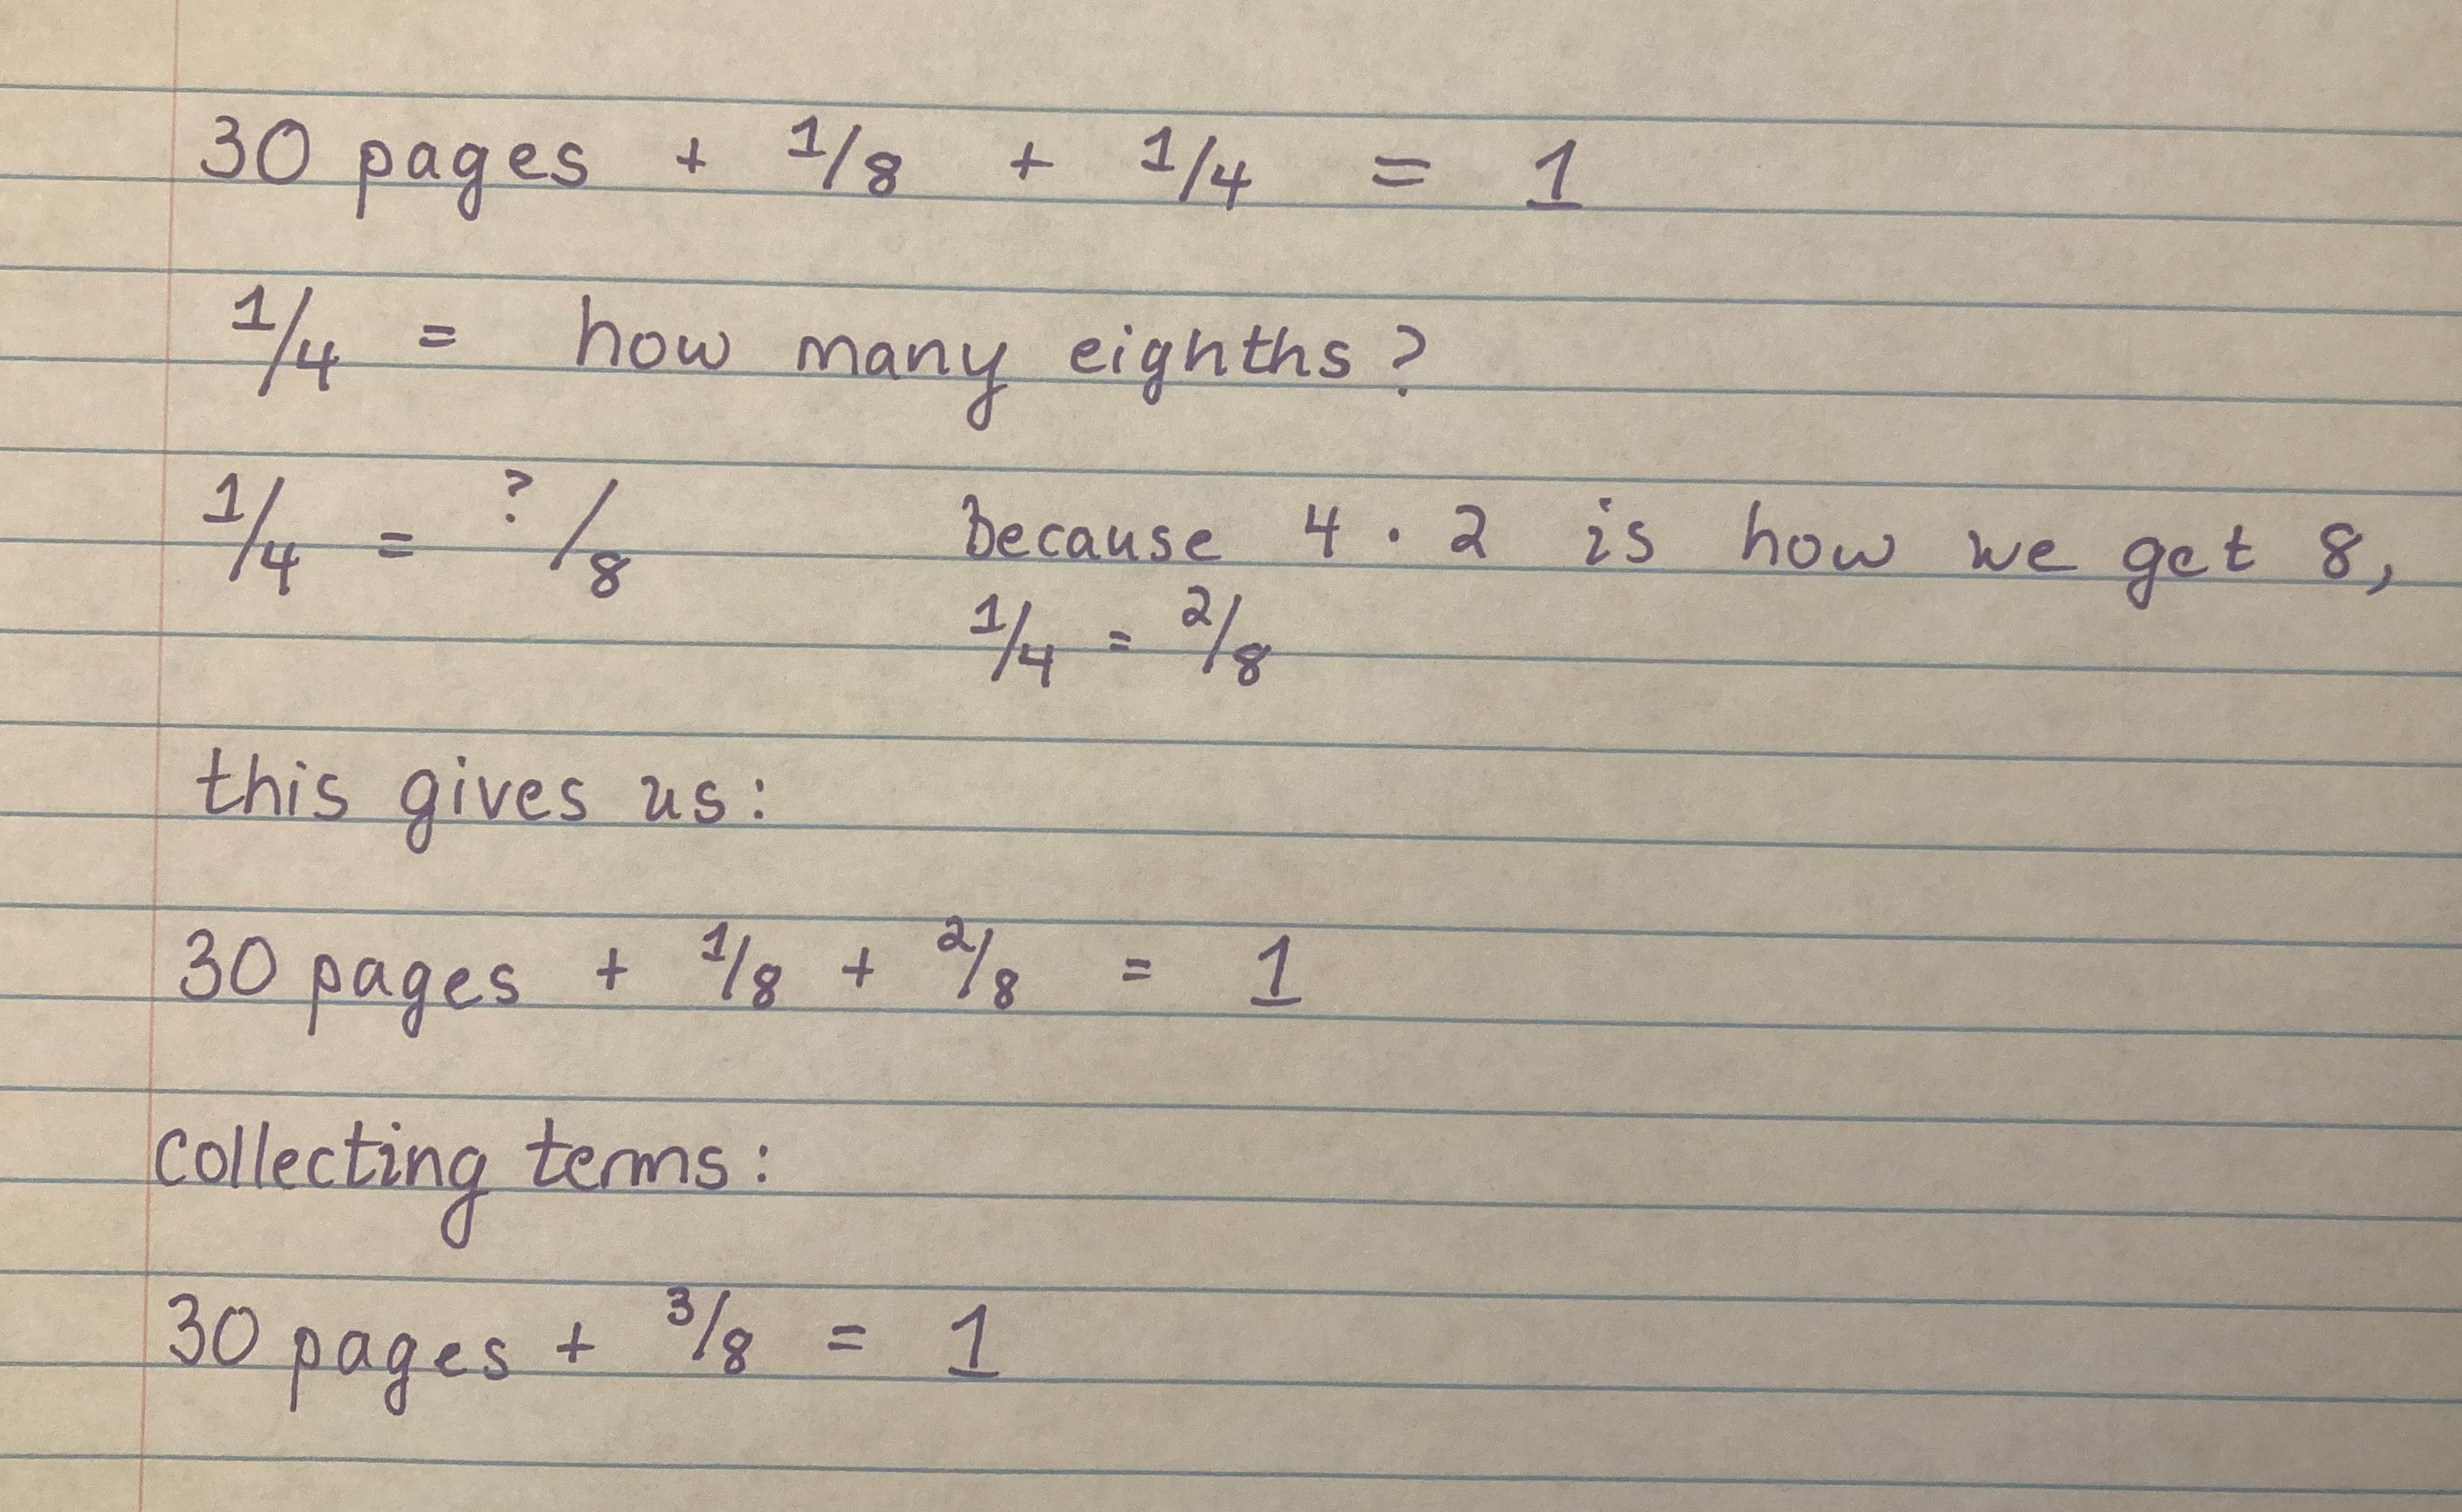 30 pages + 1/8 + 1/4 = 1
1/4 = how many eighths?
1/4 = ?/8 because 4 · 2 is how we get 8,
1/4 = 2/8
this gives us:
30 pages + 1/8 + 2/8 = 1
collecting terms:
30 pages + 3/8 = 1